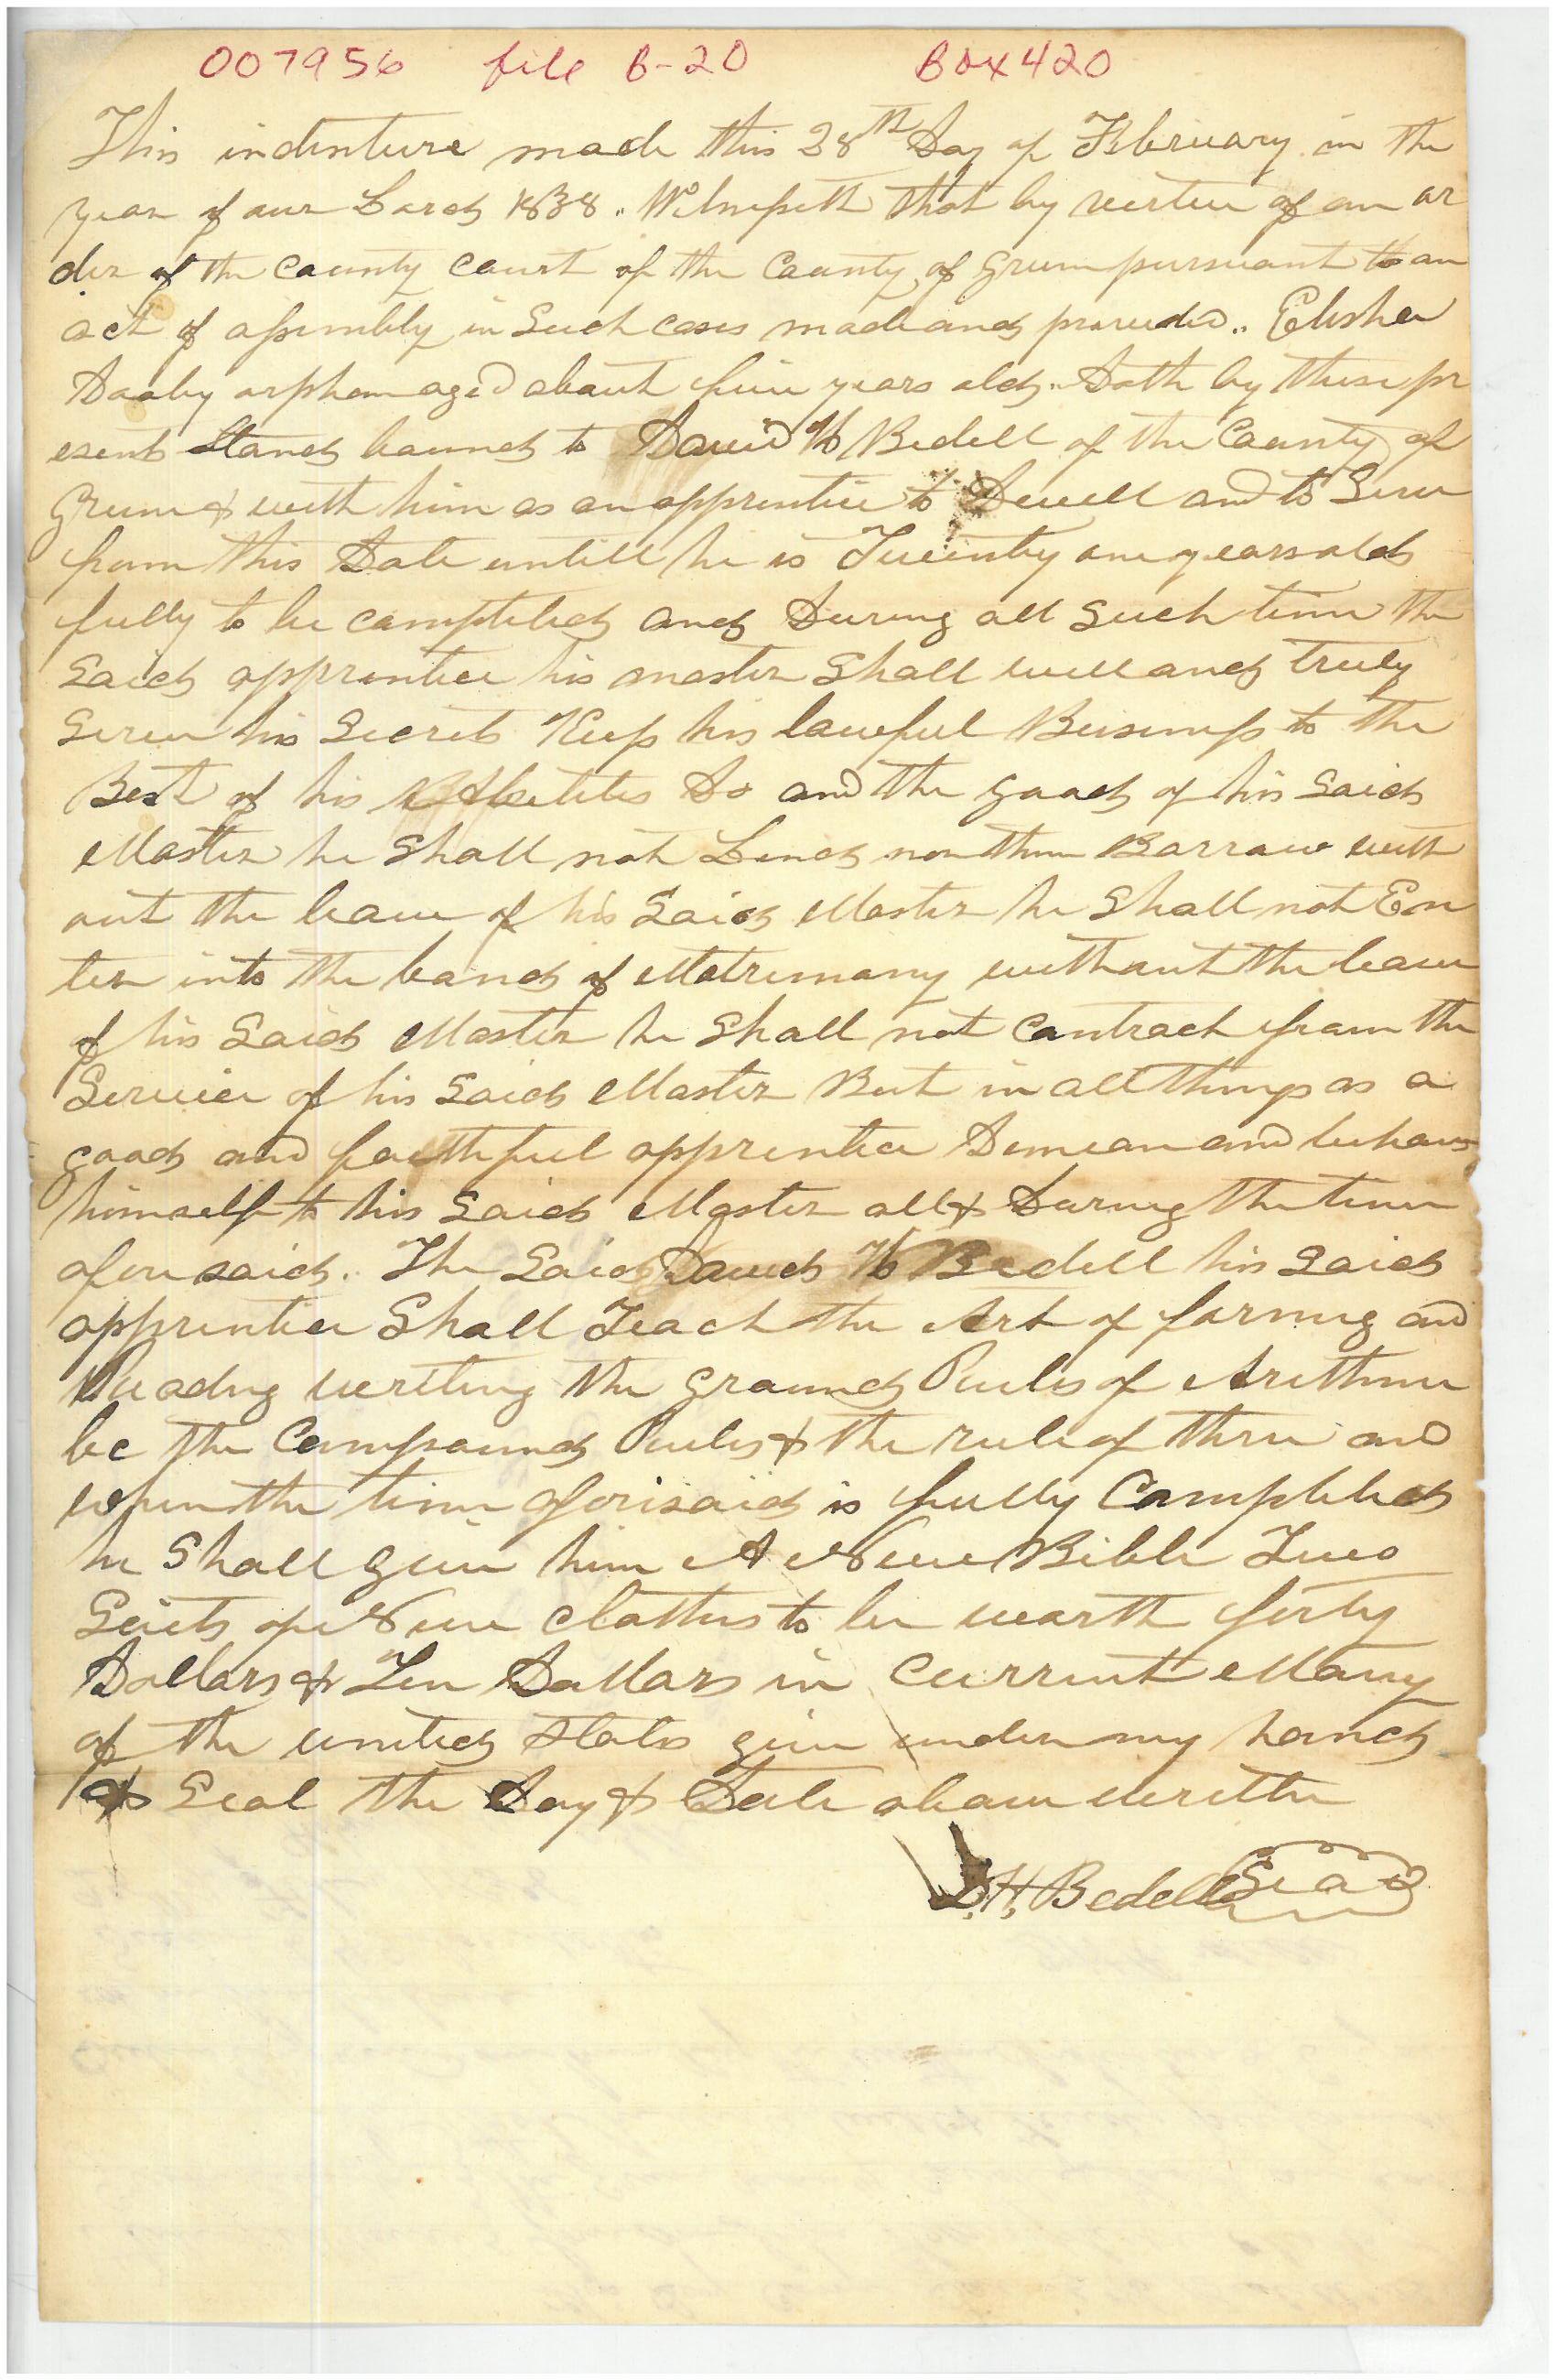 007956 file B-20 Box 420
This indenture made this 28th Day of February in the
year of our Lord 1838. Witnesseth that by vertue of an or
der of the County Court of the County of Green pursuant to an
act of assembly in Such cases made and provided.. Elisher
Dooby orphan aged about five years old. Doth by these pr
esents Stand bound to David H Bedell of the County of
Green & with him as an apprentice to Dwell and to Serve
from this Date untill he is Twenty one years old
fully to be completed and During all Such time the
Said apprentice his master Shall well and truly
Serve his Secrets Keep his lawful Buisiness to the
Best of his Abelities Do and the good of his Said
Master he Shall not Lend nor then Borrow with
out the leave of his Said Master he Shall not En
ter into the band of Matrimony without the leave
of his Said Master he Shall not contract from the
Service of his Said Master But in all things as a
good and faithful apprentice Demean and behave
himself to his Said Master all & During the time
aforesaid. The Said David H Bedell his Said
apprentice Shall Teach the Art of farming and
Reading writing the Ground Rules of Arithme
be the Compound Rules & the rule of three and
when the time aforesaid is fully Completed
he Shall give him A New Bible Two
Suits of New Clothes to be worth forty
Dollars & Ten Dollars in Current Money
of the united States give under my hand
& Seal the Day & Date above written
D.H. Bedell Seal